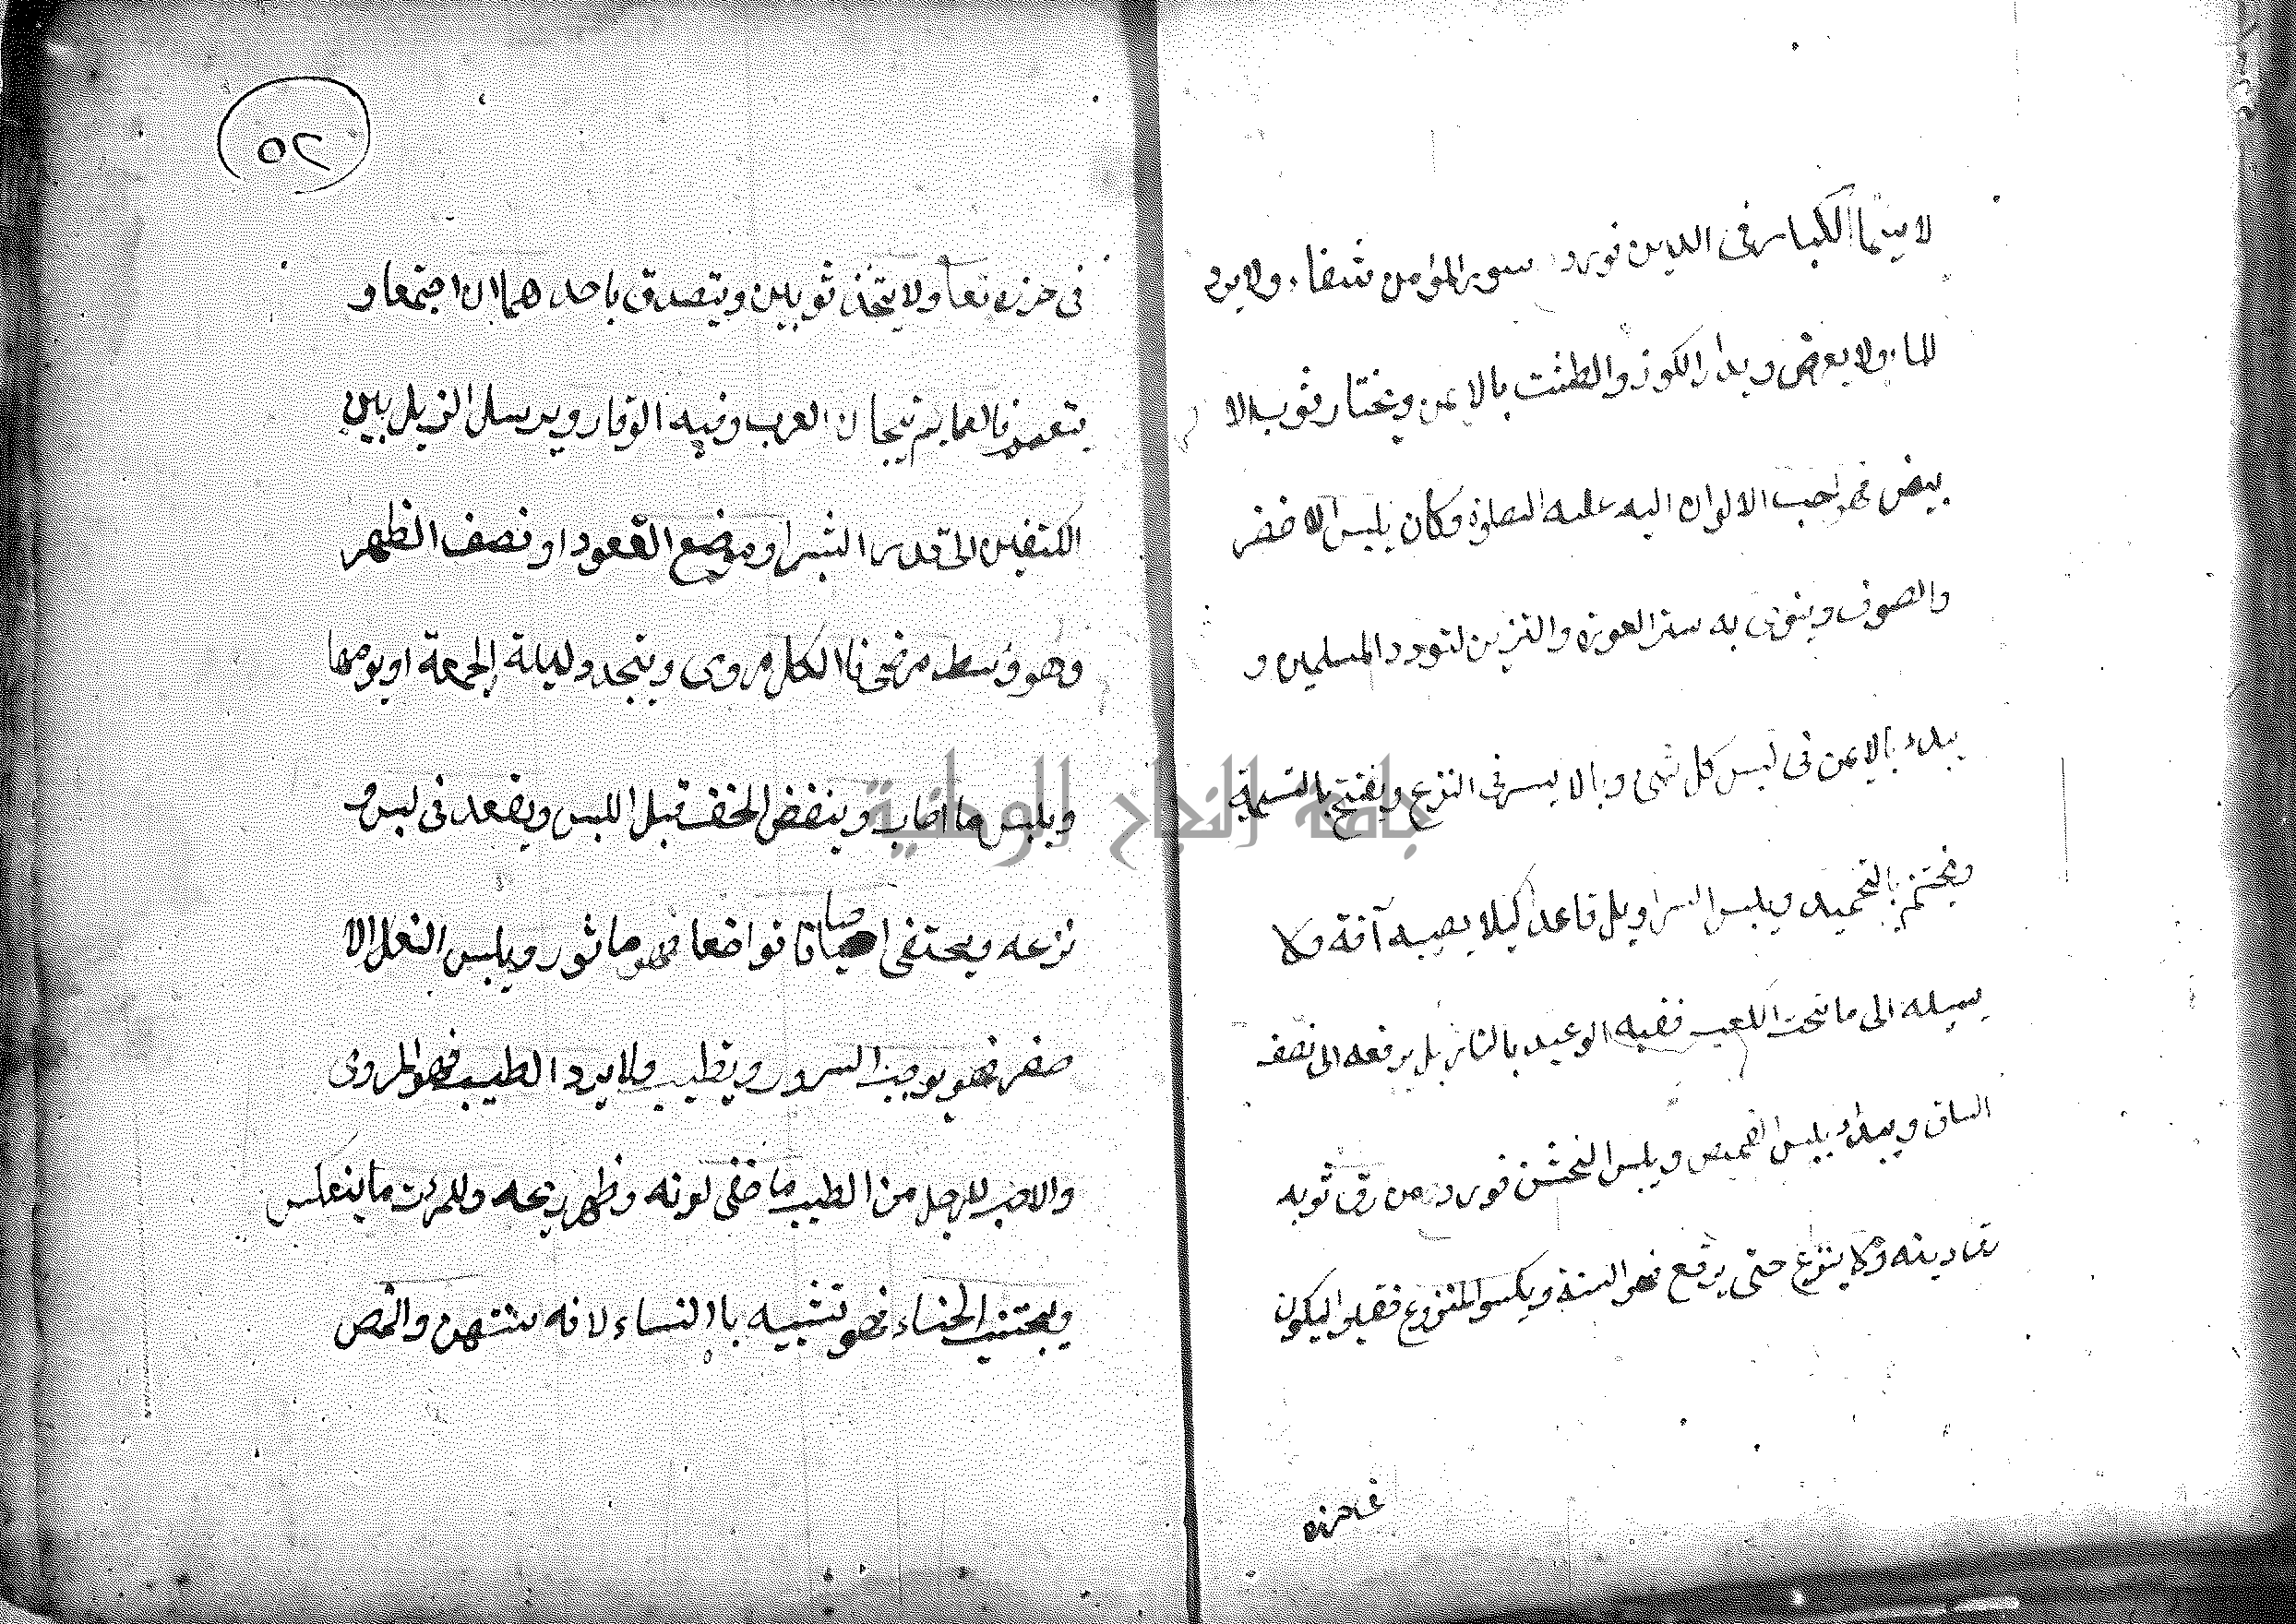 لا سيما الكبار فى الدين فورد سور المؤمن شفاء ولا يرد
الماء ولا يعرض ويدار الكوز والطشت بالايمن ويختار ثوب الا
بيض فهو احب الالوان اليه عليه الصلوة وكان يلبس الاخضر
والصوف وينوى به ستر العورة والتزين لتودد المسلمين و
يبدء بالايمن فى لبس كل شىء وبالايسر فى النزع ويفتتح بالتسمية
ويختتم بالتحميد ويلبس السراويل قاعدا كيلا يصيبه آفة ولا
يسبله الى ما تحت الكعب ففيه الوعيد بالنار بل يرفعه الى نصف
الساق ويبداء بلبس القميص ويلبس الخشن فورد من رق ثوبه
رق دينه ولا ينزع حتى يرقع فهو السنة ويكسو المنزوع فقيرا ليكون
فى حرزه
٢٥
فى حرزه تعا ولا يتخذ ثوبين ويتصدق باحدهما ان اجتمعا و
يتعمم فالعمايم تيجان العرب وفيه الوقار ويرسل الذيل بين
الكتفين الى قدر الشبر او موضع القعود او نصف الظهر
وهو وسط مرضى فالكل مروى ويتجدد ليلة الجمعة او يومها
ويلبس ما اصاب وينفض الخف قبل اللبس ويقعد فى لبس و
نزعه ويحتفى احيانا تواضعا فهو ماثور ويلبس النعل الا
صفر فهو يوجب السرور ويتطيب ولا يرد الطيب فهو المروى
والاحب للرجل من الطيب ما خفى لونه وظهر ريحه وللمرءت ما ينعكس
ويجتنب الحناء فهو تشبيه باالنساء لانه سنتهن والقص
جامعة النجاح الوطنية